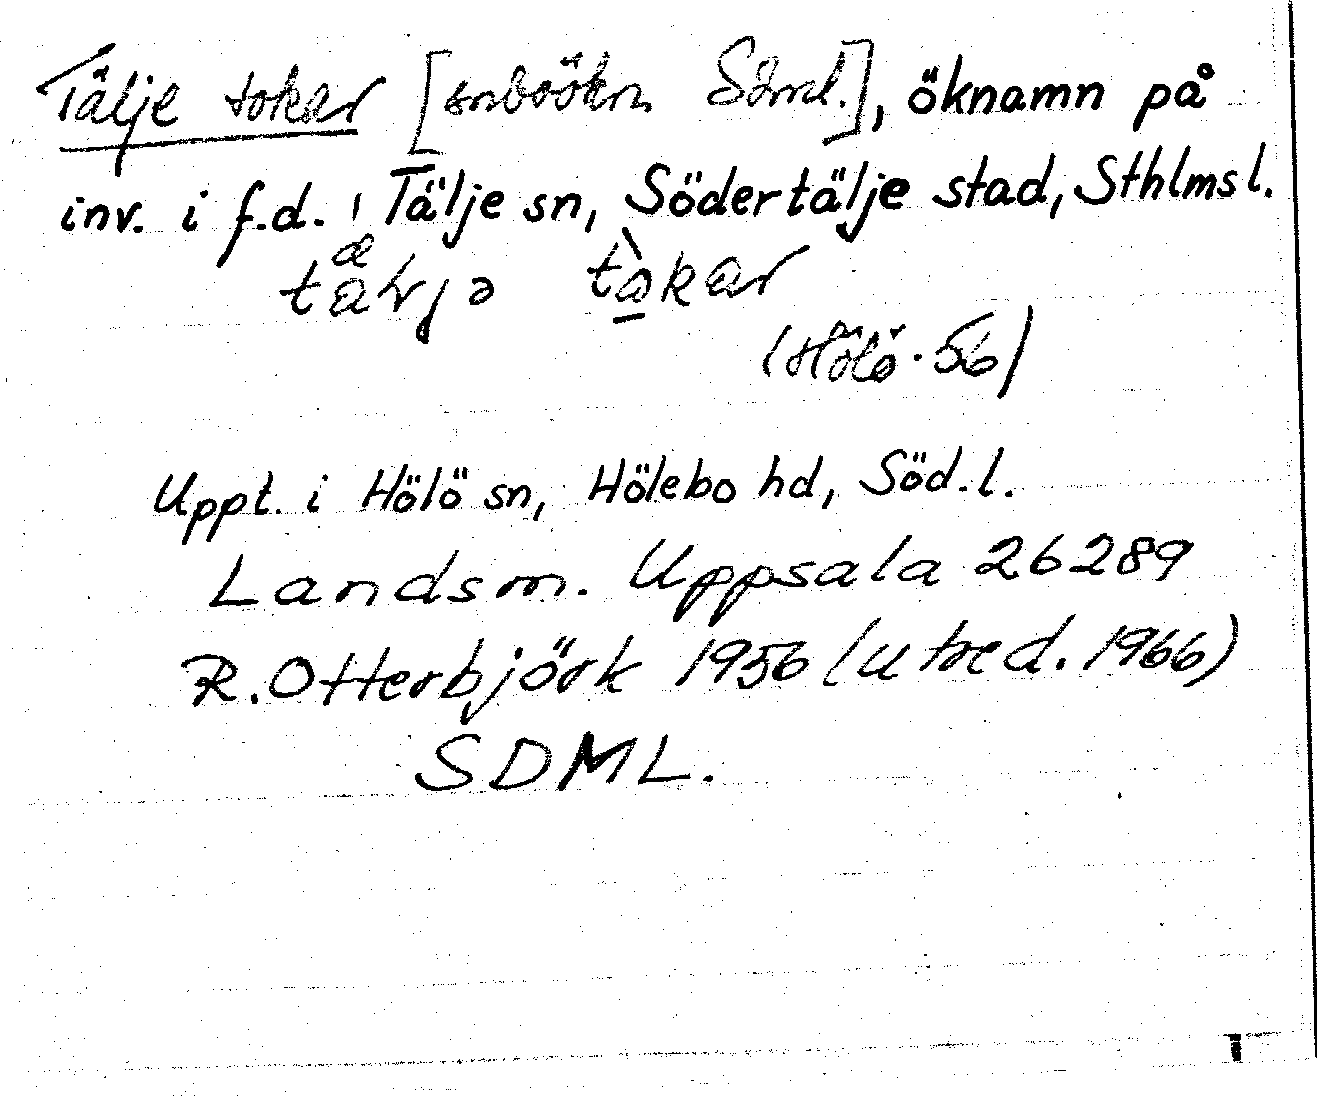 Tälje tokar [snboökn Sdml.], öknamn på
inv. i f.d. Tälje sn, Södertälje stad, Sthlms l.
(Hölö. 56)
Uppt. i Hölö sn, Hölebo hd, Söd. l.
Landsm. Uppsala 26289
R. Otterbjörk 1956 (utred. 1966)
SDML.